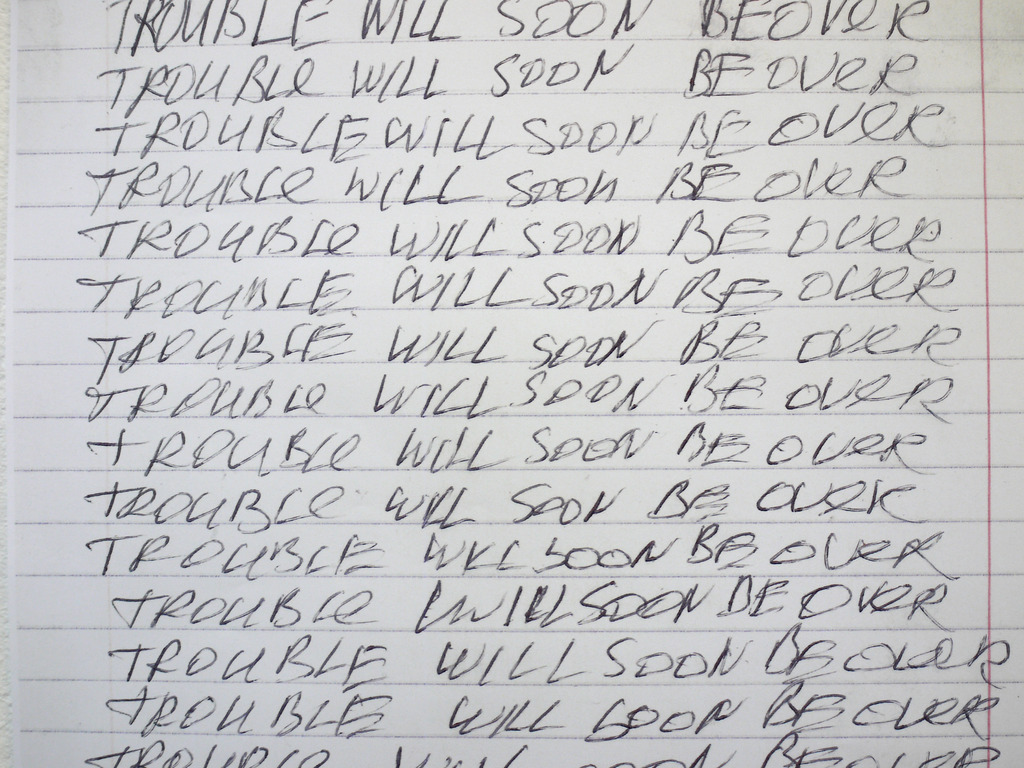 TROUBLE WILL SOON BE OVER
TROUBLe WILL SOON BE OVeR
TROUBLE WILL SOON BE OVeR
TROUBLe WILL SOON BE OVeR
TROUBLe WILL SOON BE OVeR
TROUBLE WILL SOON BE OVeR
TROUBLE WILL SOON BE OVeR
TROUBLe WILL SOON BE OVeR
TROUBLe WILL SOON BE OVeR
TROUBLe WILL SOON BE OVeR
TROUBLE WILL SOON BE OVeR
TROUBLe WILL SOON BE OVeR
TROUBLE WILL SOON BE OVeR
TROUBLE WILL SOON BE OVeR
TROUBLE WILL SOON BE OVER